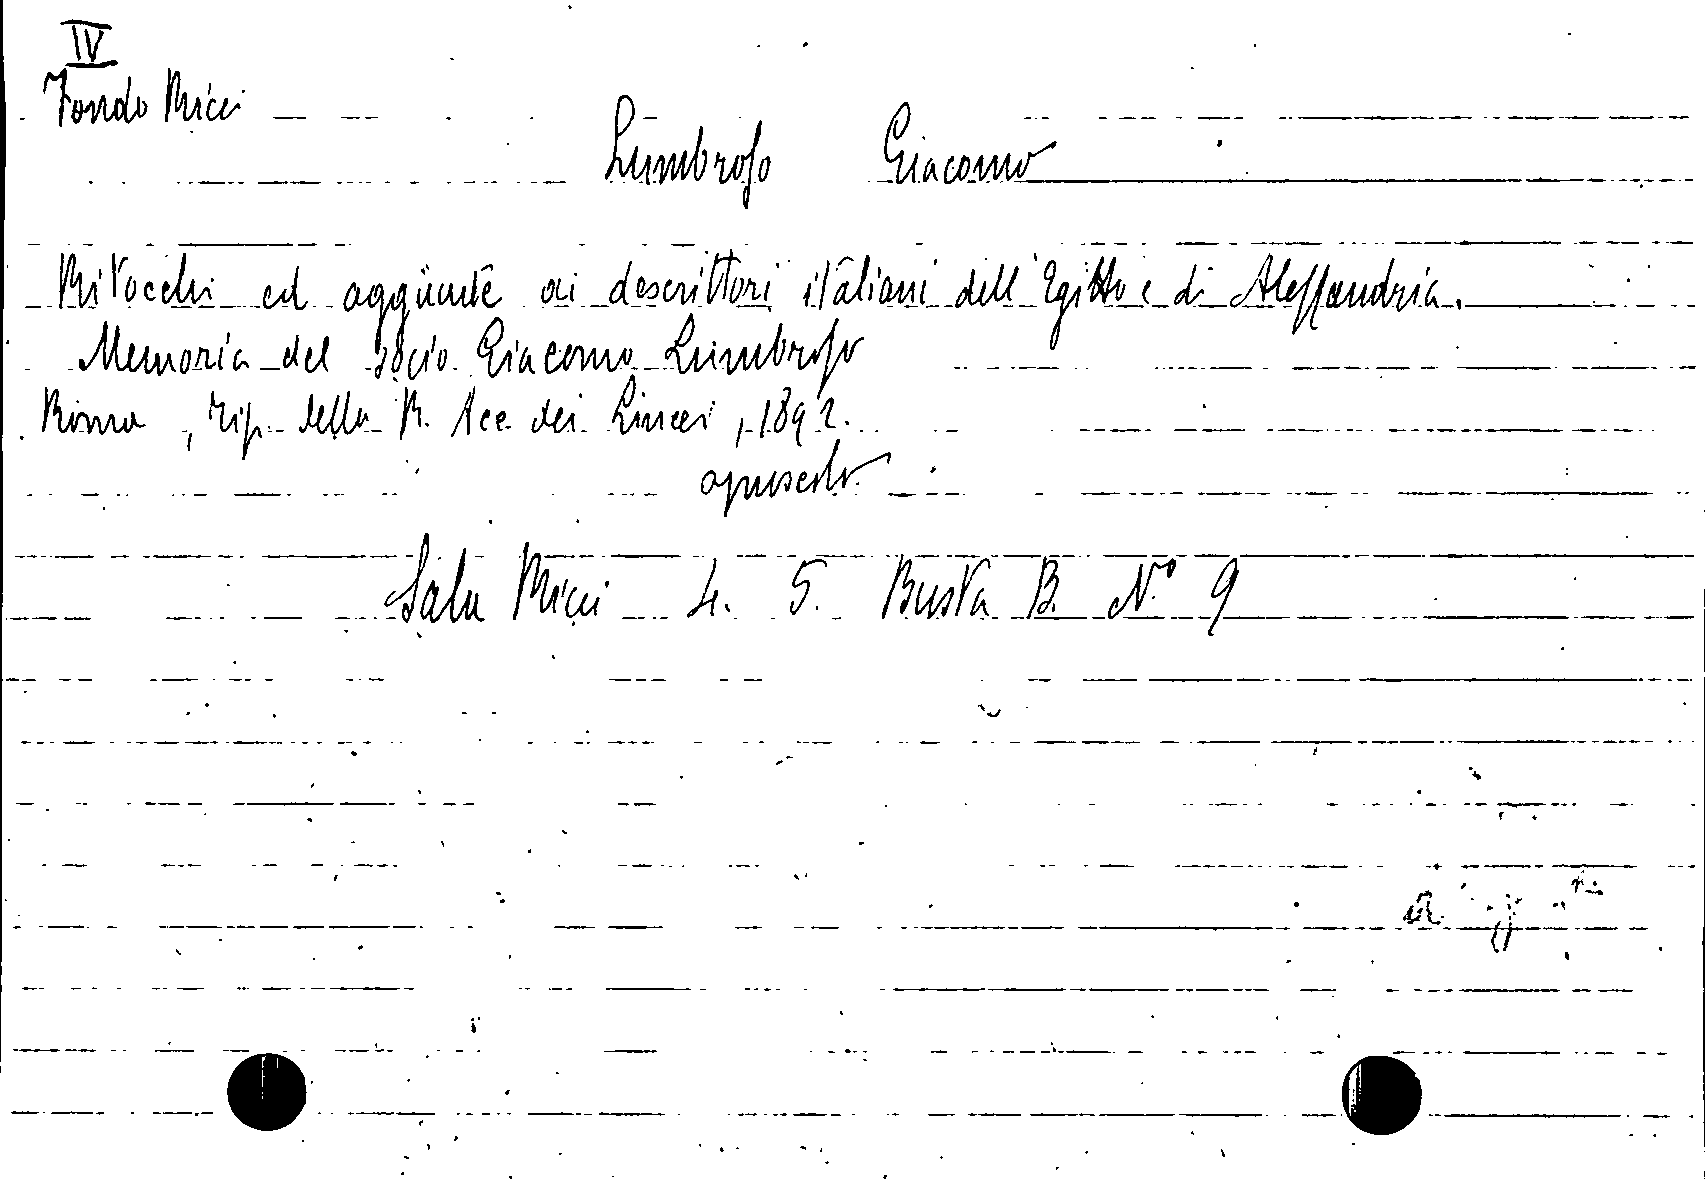 IV
Fondo Ricci
Lumbroso Giacomo
Ritocchi ed aggiunte ai descrittori italiani dell'Egitto e di Alessandria.
Memoria del socio Giacomo Lumbroso
Roma, tip. della R. Acc. dei Lincei, 1892.
opuscolo.
Sala Ricci 4. 5. Busta B. N.º 9